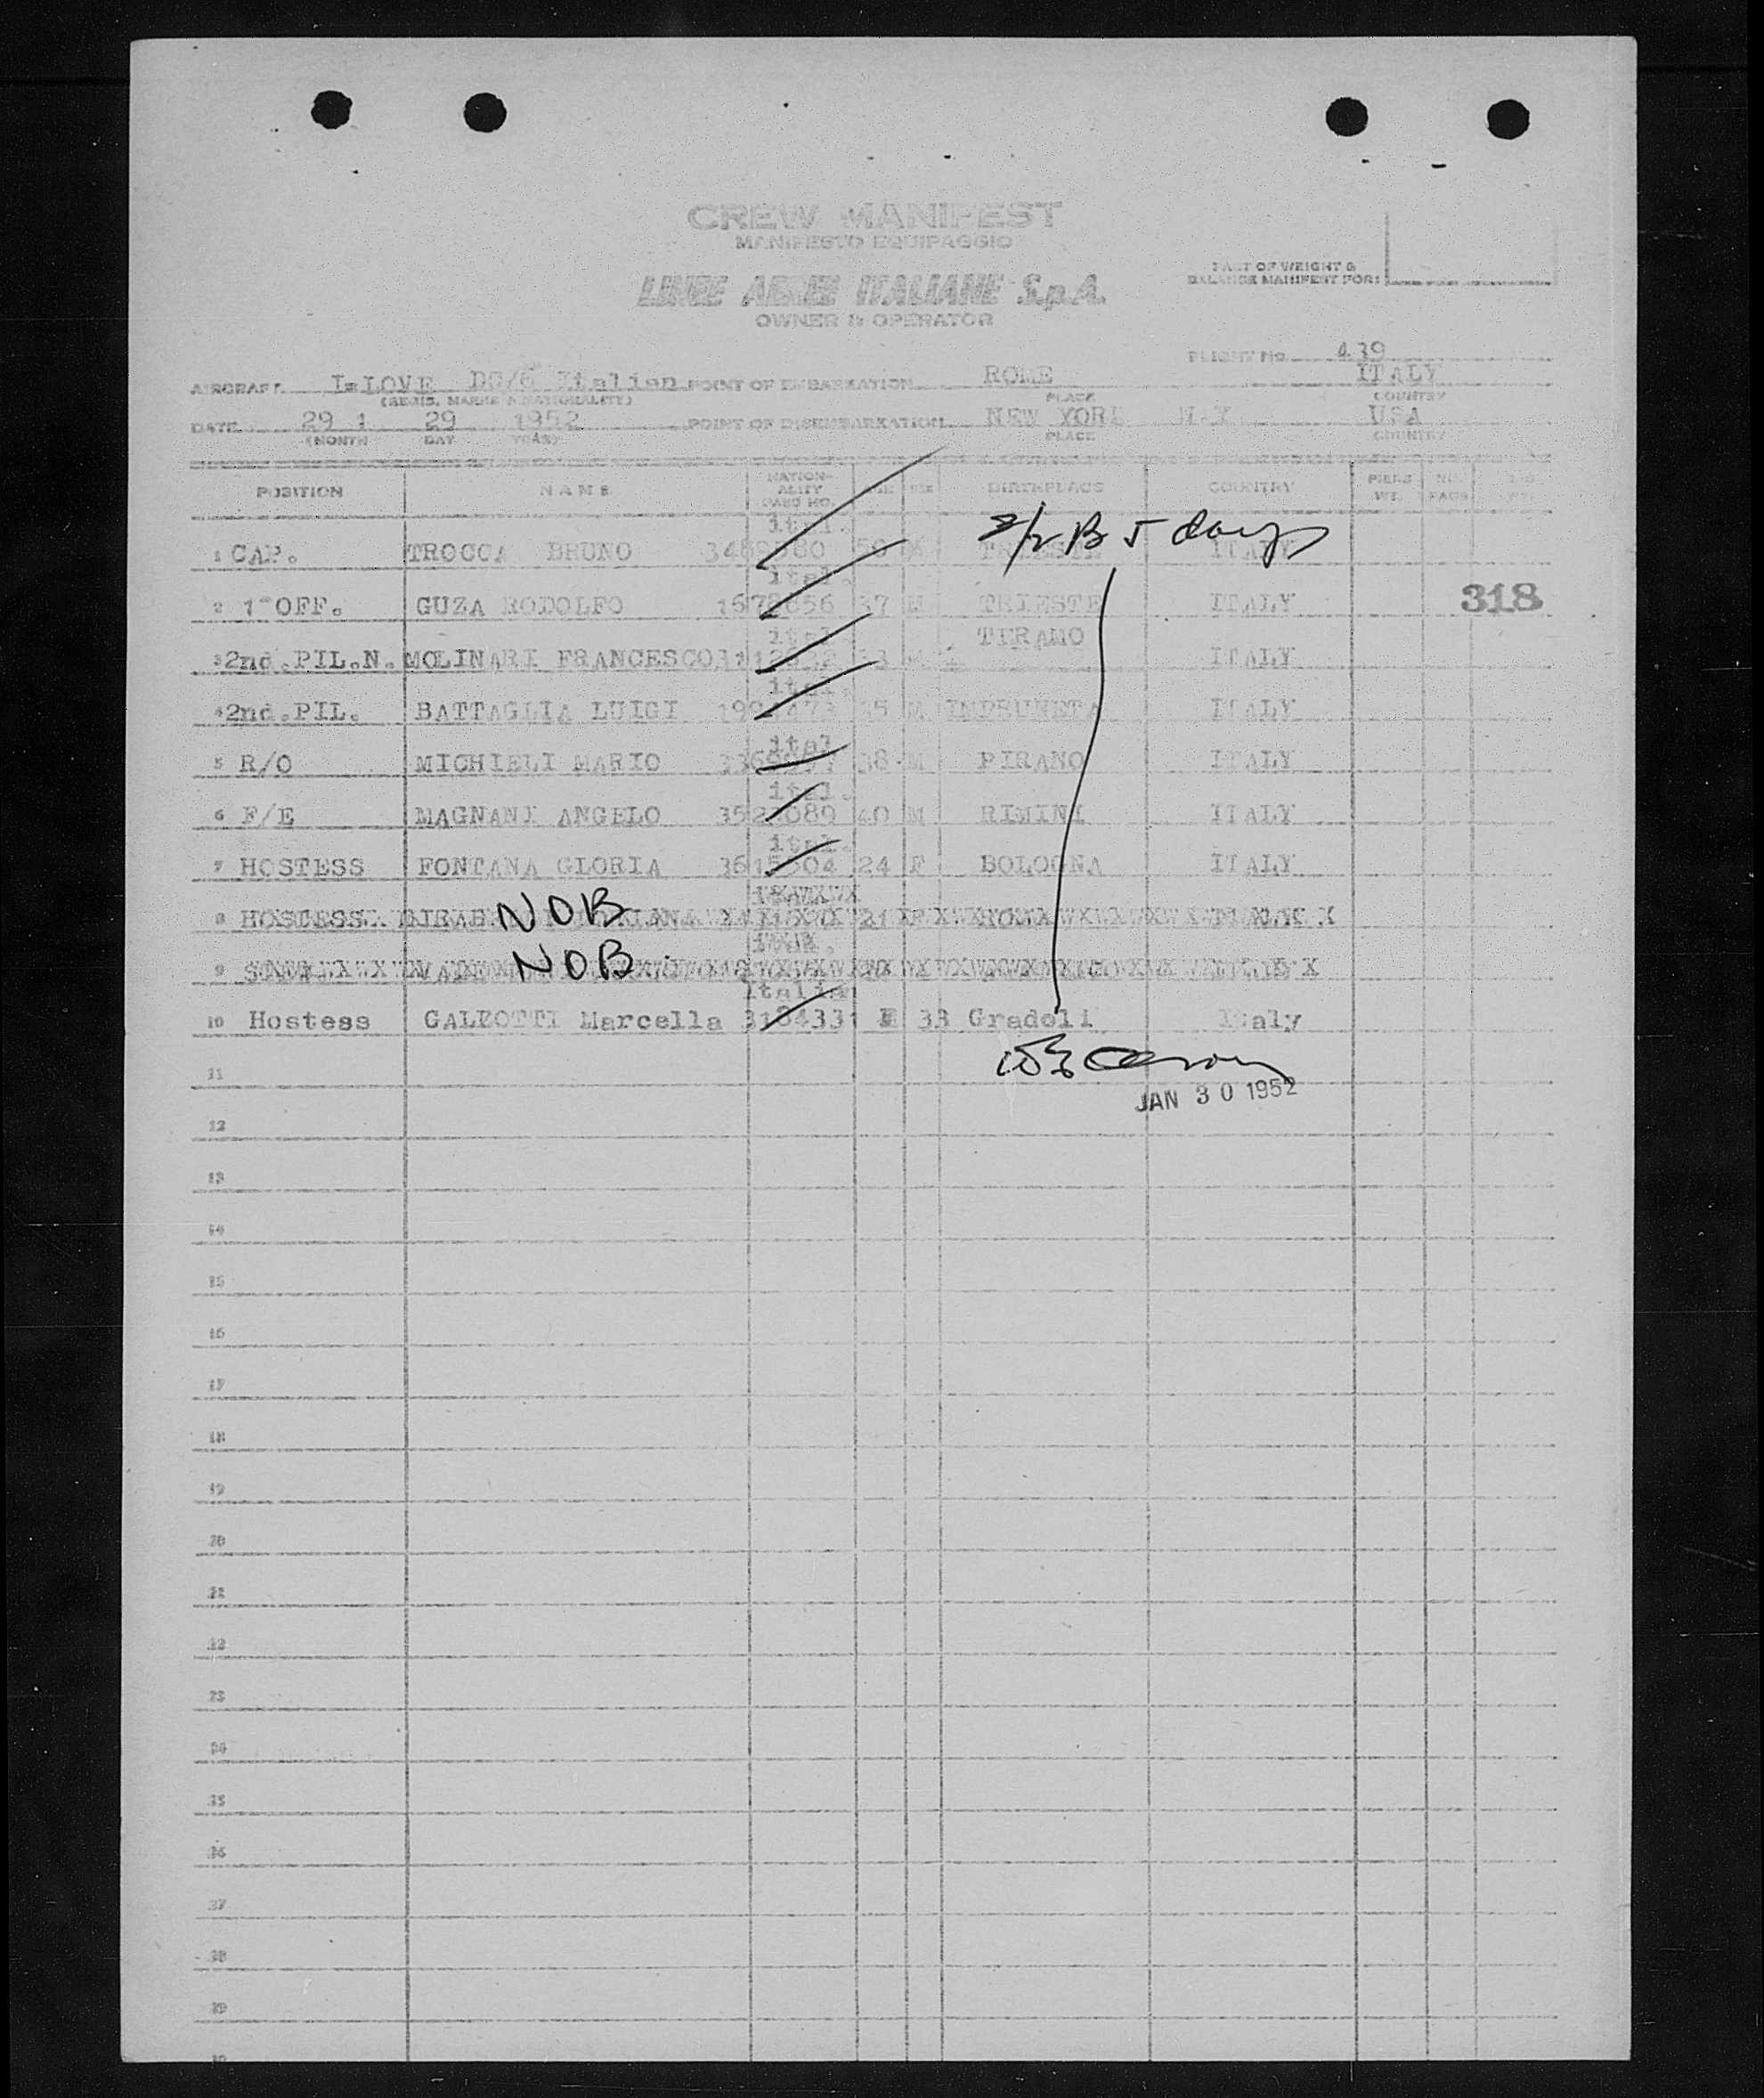 CREW MANIFEST
MANIFESTO EQUIPAGGIO
LINEE AEREE ITALIANE S.p.A.
OWNER & OPERATOR
PART OF WEIGHT &
BALANCE MANIFEST FOR:
FLIGHT No. 439
AIRCRAFT I-LOVE DC/6 Italian POINT OF EMBARKATION ROME ITALY
(REGIS. MARKS & NATIONALITY) PLACE COUNTRY
DATE 29 1 29 1952 POINT OF DISEMBARKATION NEW YORK N.Y USA
(MONTH DAY YEAR) PLACE COUNTRY
POSITION NAME NATION-ALITY PASS NO. AGE SEX BIRTHPLACE COUNTRY
2/2 B 5 days
ital.
1 CAP. TROCCA BRUNO 50 M TRIESTE ITALY
ital.
2 1° OFF. GUZA RODOLFO 37 M TRIESTE ITALY 318
ital.
3 2nd.PIL.N. MOLINARI FRANCESCO 33 M TERAMO ITALY
ital.
4 2nd.PIL. BATTAGLIA LUIGI 35 M IMPRUNETA ITALY
ital
5 R/O MICHIELI MARIO 38 M PIRANO ITALY
ital.
6 F/E MAGNANI ANGELO 40 M RIMINI ITALY
ital.
7 HOSTESS FONTANA GLORIA 24 F BOLOGNA ITALY
8 HOSTESS NOB
9 NOB
Italia
10 Hostess GALEOTTI Marcella 3184331 F 33 Gradoli Italy
11
JAN 30 1952
12
13
14
15
16
17
18
19
20
21
22
23
24
25
26
27
28
29